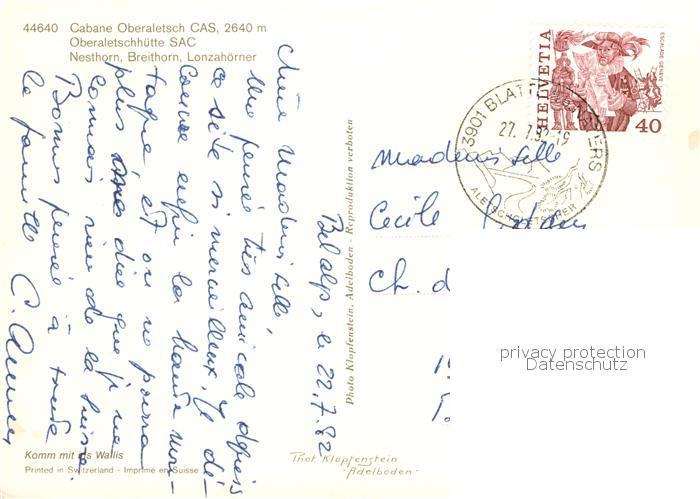 44640 Cabane Oberaletsch CAS, 2640 m
Oberaletschhütte SAC
Nesthorn, Breithorn, Lonzahörner
Belalp, le 22.7.82
Chère Mademoiselle,
Une pensée très amicale depuis
ce site si merveilleux. Je dé-
couvre enfin la haute mon-
tagne et on ne pourra
plus dire que je ne
connais rien de la Suisse.
Bonnes pensées à toute
la famille
Komm mit ins Wallis
Printed in Switzerland - Imprimé en Suisse
Photo Klopfenstein, Adelboden - Reproduktion verboten
Phot. Klopfenstein
Adelboden
HELVETIA
ESCALADE GENÈVE
40
3901 BLATTEN
27.7.82-19
Mademoiselle
Cécile
Ch. d
privacy protection
Datenschutz